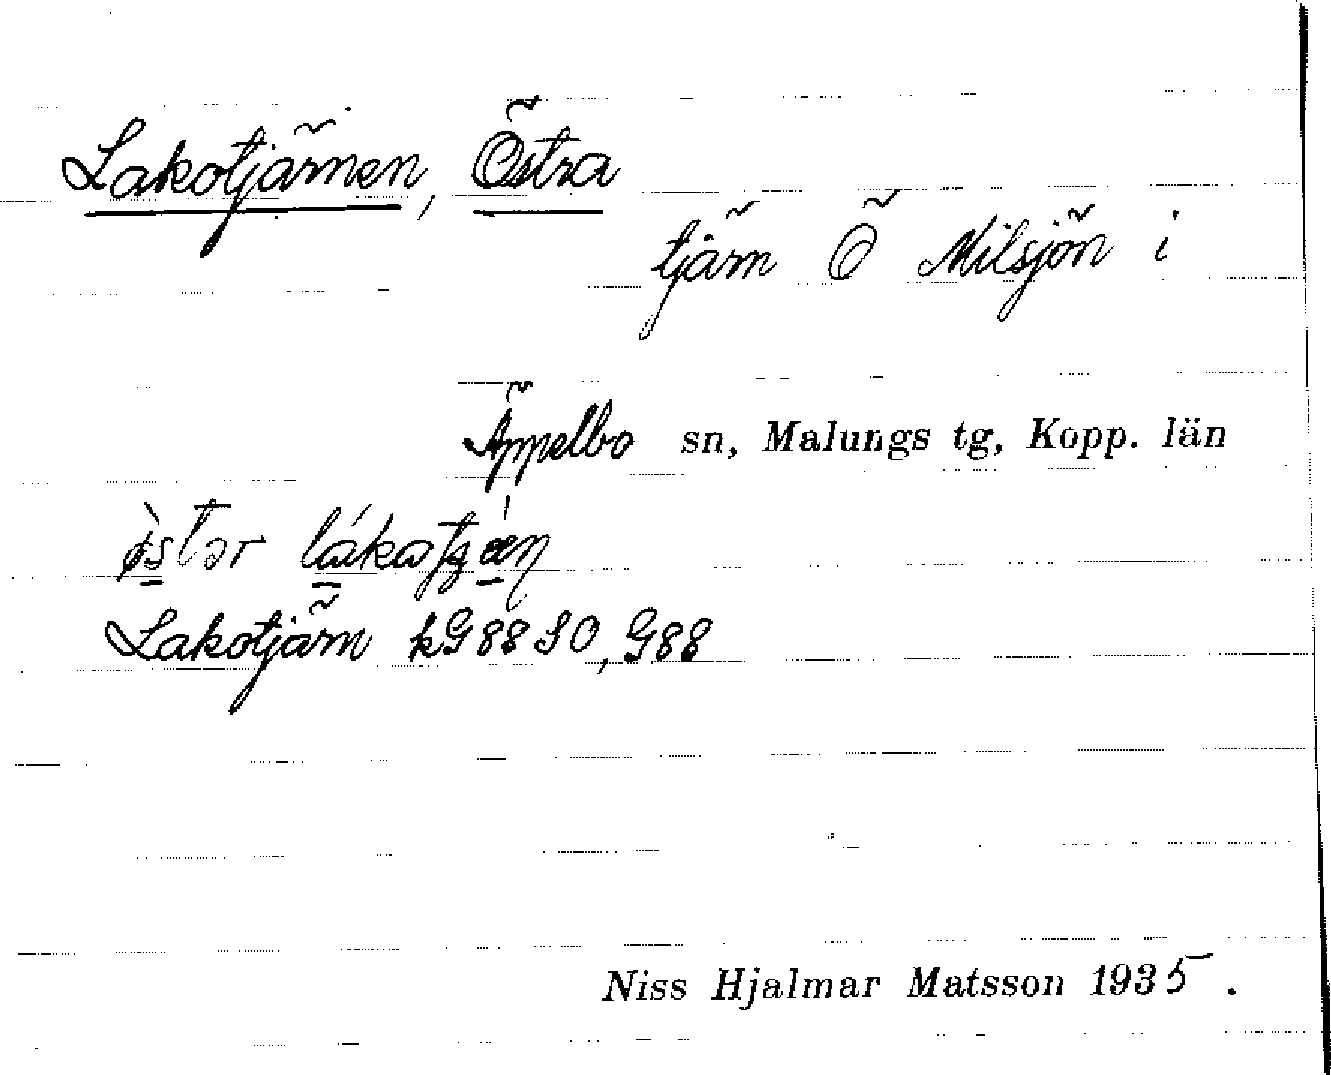 Lakotjärnen, Östra
tjärn Ö Milsjön i
Äppelbo sn, Malungs tg, Kopp. län
Lakotjärn kG88 SO, G88
Niss Hjalmar Matsson 1935.